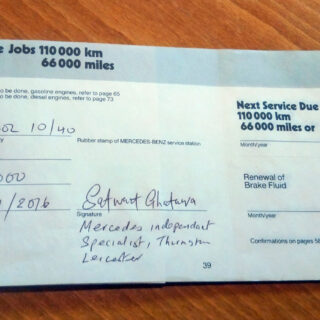 e Jobs 110 000 km
66 000 miles
to be done, gasoline engines, refer to page 65
to be done, diesel engines, refer to page 73
10/40
Rubber stamp of MERCEDES-BENZ service station
000
/2016
Signature
Mercedes independent
Specialist, Thurmaston
Leicester
39
Next Service Due
110 000 km
66 000 miles or
Month/year
Renewal of
Brake Fluid
Month/year
Confirmations on pages 58